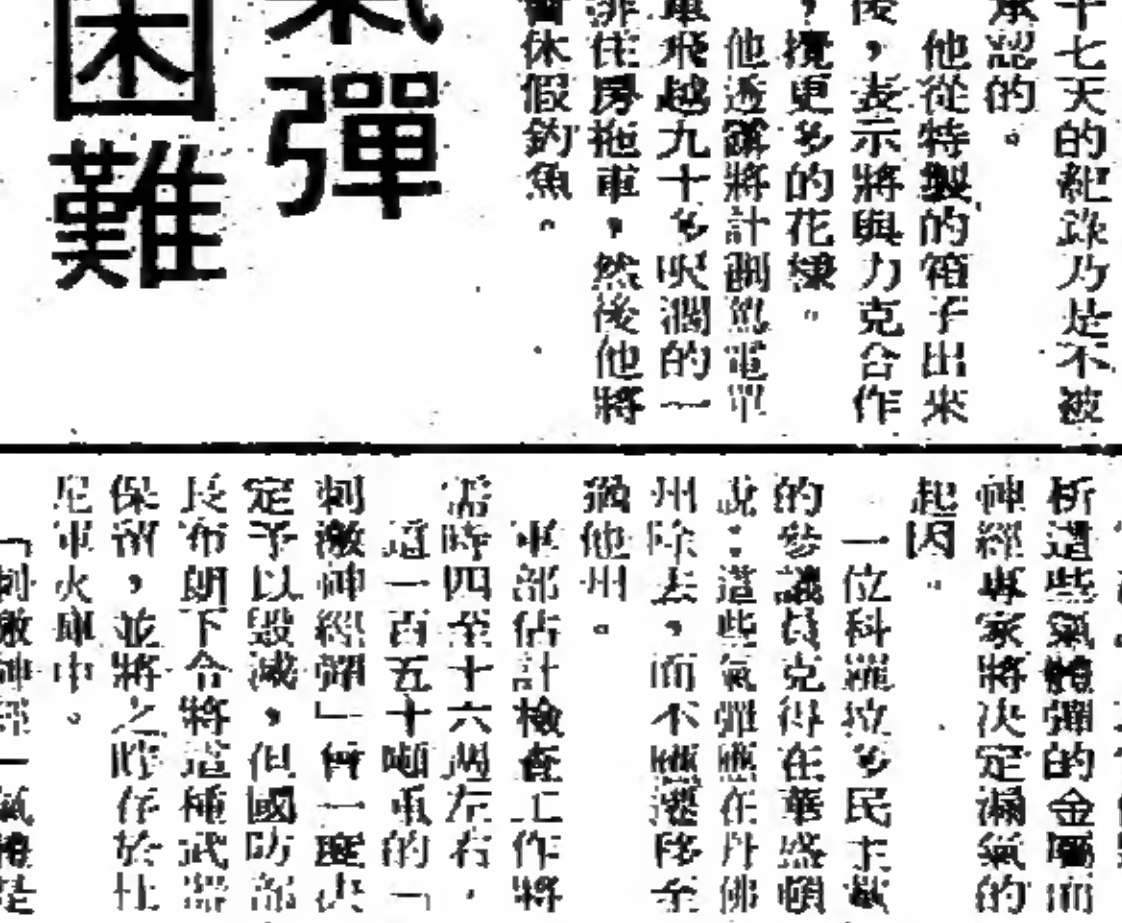 彈
困難
十七天的紀錄乃是不被
承認的。
他從特製的箱子出來
後，表示將與力克合作
，攪更多的花樣。
他透露將計劃駕電單
車飛越九十多呎濶的一
排住房拖車，然後他將
會休假釣魚。
析這些氣體彈的金屬而
神經專家將決定漏氣的
起因。
一位科羅拉多民主黨
的參議員克得在華盛頓
說：這些氣彈應在丹佛
州除去，而不應遷移至
猶他州。
軍部估計檢查工作將
需時四至十六週左右，
這一百五十噸重的「
刺激神經彈」曾一度決
定予以毀滅，但國防部
長布朗下令將這種武器
保留，並將之貯存於杜
尼軍火庫中。
「刺激神經」氣體是